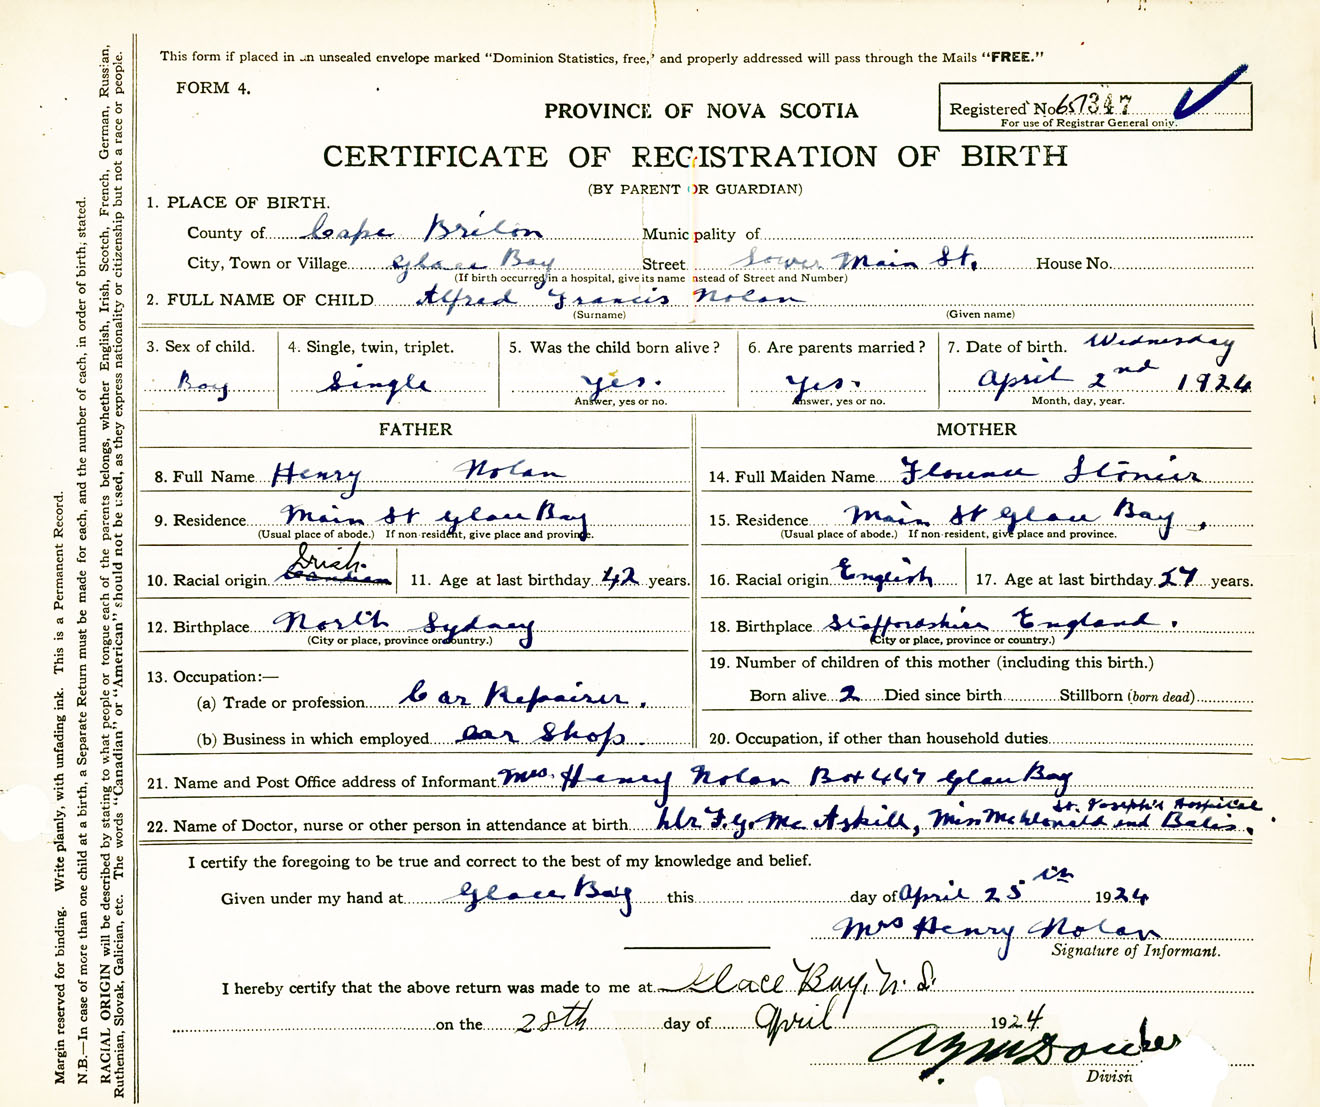 This form if placed in an unsealed envelope marked "Dominion Statistics, free," and properly addressed will pass through the Mails "FREE."
FORM 4.
Registered No. 657347
For use of Registrar General only.
PROVINCE OF NOVA SCOTIA
CERTIFICATE OF REGISTRATION OF BIRTH
(BY PARENT OR GUARDIAN)
1. PLACE OF BIRTH.
County of Cape Briton Municipality of
City, Town or Village Glace Bay Street Lower Main St. House No.
(If birth occurred in a hospital, give its name instead of Street and Number)
2. FULL NAME OF CHILD Alfred Francis Nolan
(Surname) (Given name)
3. Sex of child. 4. Single, twin, triplet. 5. Was the child born alive? 6. Are parents married? 7. Date of birth. Wednesday
Boy Single Yes. Yes. April 2nd 1924
Answer, yes or no. Answer, yes or no. Month, day, year.
FATHER MOTHER
8. Full Name Henry Nolan 14. Full Maiden Name Florence Stonier
9. Residence Main St Glace Bay 15. Residence Main St Glace Bay,
(Usual place of abode.) If non-resident, give place and province. (Usual place of abode.) If non-resident, give place and province.
Irish
10. Racial origin Canadian 11. Age at last birthday 42 years. 16. Racial origin English 17. Age at last birthday 27 years.
12. Birthplace North Sydney 18. Birthplace Staffordshire England.
(City or place, province or country.) (City or place, province or country.)
13. Occupation:— 19. Number of children of this mother (including this birth.)
(a) Trade or profession Car Repairer. Born alive 2 Died since birth Stillborn (born dead)
(b) Business in which employed Car Shop. 20. Occupation, if other than household duties
21. Name and Post Office address of Informant Mrs. Henry Nolan Box 447 Glace Bay
St. Joseph's Hospital
22. Name of Doctor, nurse or other person in attendance at birth Dr F.G. Mc Askill, Miss McDonald and
I certify the foregoing to be true and correct to the best of my knowledge and belief.
Given under my hand at Glace Bay this day of April 25th 1924
Mrs Henry Nolan
Signature of Informant.
I hereby certify that the above return was made to me at Glace Bay, N. S.
on the 28th day of April 1924
Divisi
Margin reserved for binding. Write plainly, with unfading ink. This is a Permanent Record.
N.B.—In case of more than one child at a birth, a Separate Return must be made for each, and the number of each, in order of birth, stated.
RACIAL ORIGIN will be described by stating to what people or tongue each of the parents belongs, whether English, Irish, Scotch, French, German, Russian,
Ruthenian, Slovak, Galician, etc. The words "Canadian" or "American" should not be used, as they express nationality or citizenship but not a race or people.